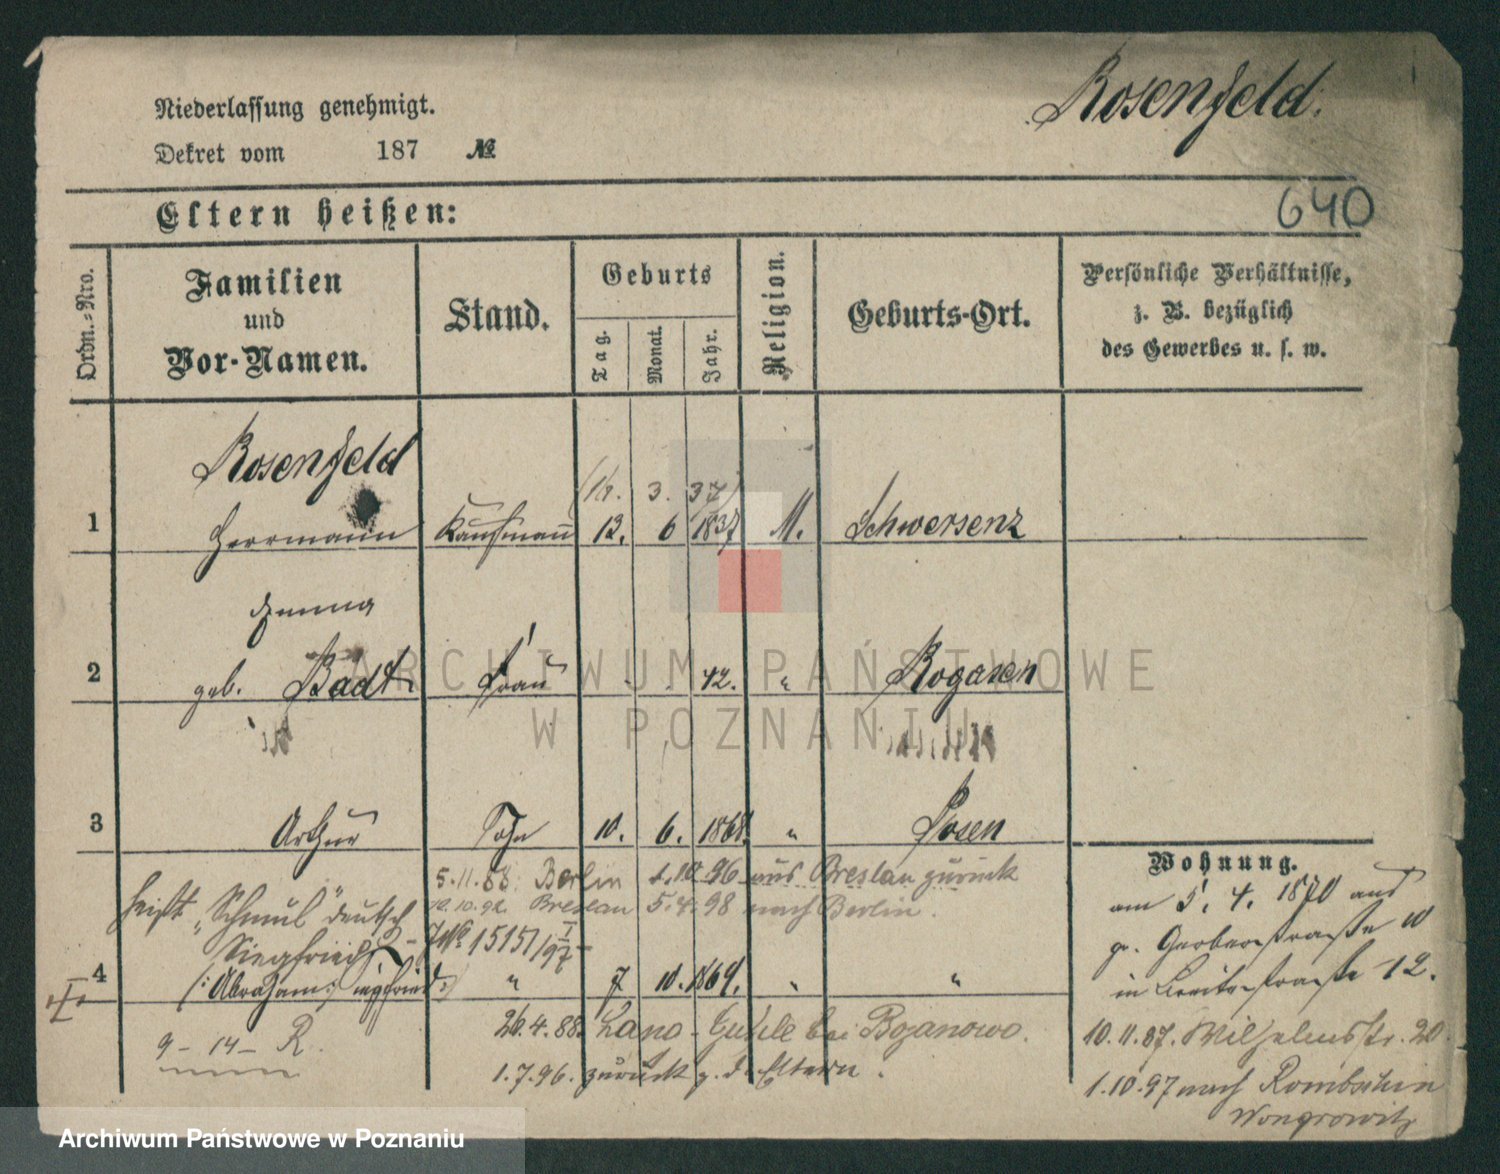 Rosenfeld.
Niederlassung genehmigt.
Dekret vom 187 №
640
Eltern heißen:
Ordn.-Nro.
Familien
und
Vor-Namen.
Stand.
Geburts
Tag.
Monat.
Jahr.
Religion.
Geburts-Ort.
Persönliche Verhältnisse,
z. B. bezüglich
des Gewerbes u. s. w.
Rosenfeld
3. 37)
1 Herrmann Kaufmann 13. 6 1837 M. Schwersenz
Emma
2 geb. Badt Frau 42. " Rogasen
3 Arthur Sohn 10. 6. 1868. " Posen
5.11.88. Berlin 1.10 96 aus Breslau zurück
heißt „Schmul" deutsch
10.10.92. Breslau 5.4.98 nach Berlin.
Siegfried
15151/97
4 (:Abraham:) " 7 10. 1869. " "
26.4.88. bei Bojanowo.
9-14- R.
1.7.96. zurück z. d. Eltern.
Wohnung.
am 5. 4. 1870 aus
gr. Gerberstraße
in Breitestraße 12.
10.11.87. Wilhelmsstr. 20.
1.10.97 nach
Wongrowitz
ARCHIWUM PAŃSTWOWE
W POZNANIU
Archiwum Państwowe w Poznaniu